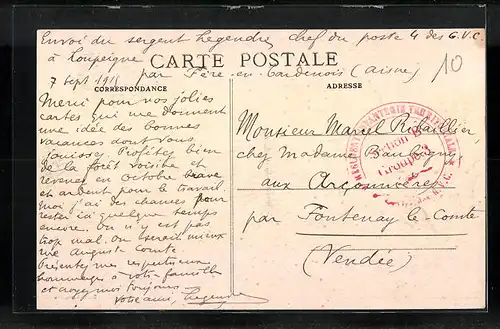 Envoi du sergent Legendre, chef du poste 4 des G.V.C.
à Loupeigne
CARTE POSTALE
7 Sept 1915 par Fère-en-Tardenois (Aisne)
10
CORRESPONDANCE
ADRESSE
Merci pour vos jolies
cartes qui me donnent
une idée des bonnes
vacances dont vous
jouissez. Profitez bien
de la forêt voisine et
revenez en octobre brave
et ardent pour le travail.
Moi j'ai des chances pour
rester ici quelque temps
encore. On n'y est pas
trop mal. On serait mieux
rue Auguste Comte.
Présentez mes respectueux
hommages à votre famille
et soyez moi toujours
votre ami Legendre
Monsieur Marcel Robaillier
chez Madame
aux Arçonnières
par Fontenay-le-Comte
(Vendée)
INFANTERIE TERRITORIALE
Section